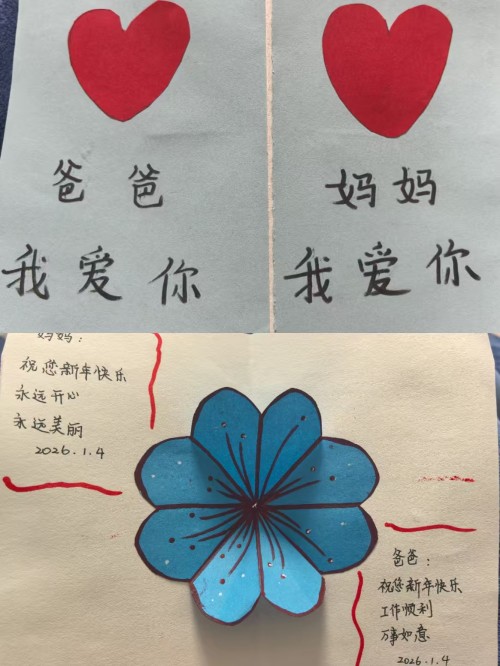 爸爸
我爱你
妈妈
我爱你
妈妈：
祝您新年快乐
永远开心
永远美丽
2026.1.4
爸爸：
祝您新年快乐
工作顺利
万事如意
2026.1.4